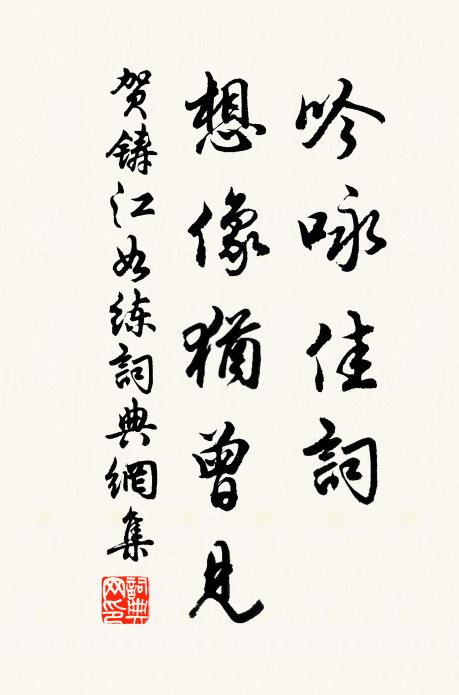 吟咏佳詞
想像猶曾見
贺鑄江如练詞典網集
詞典网印